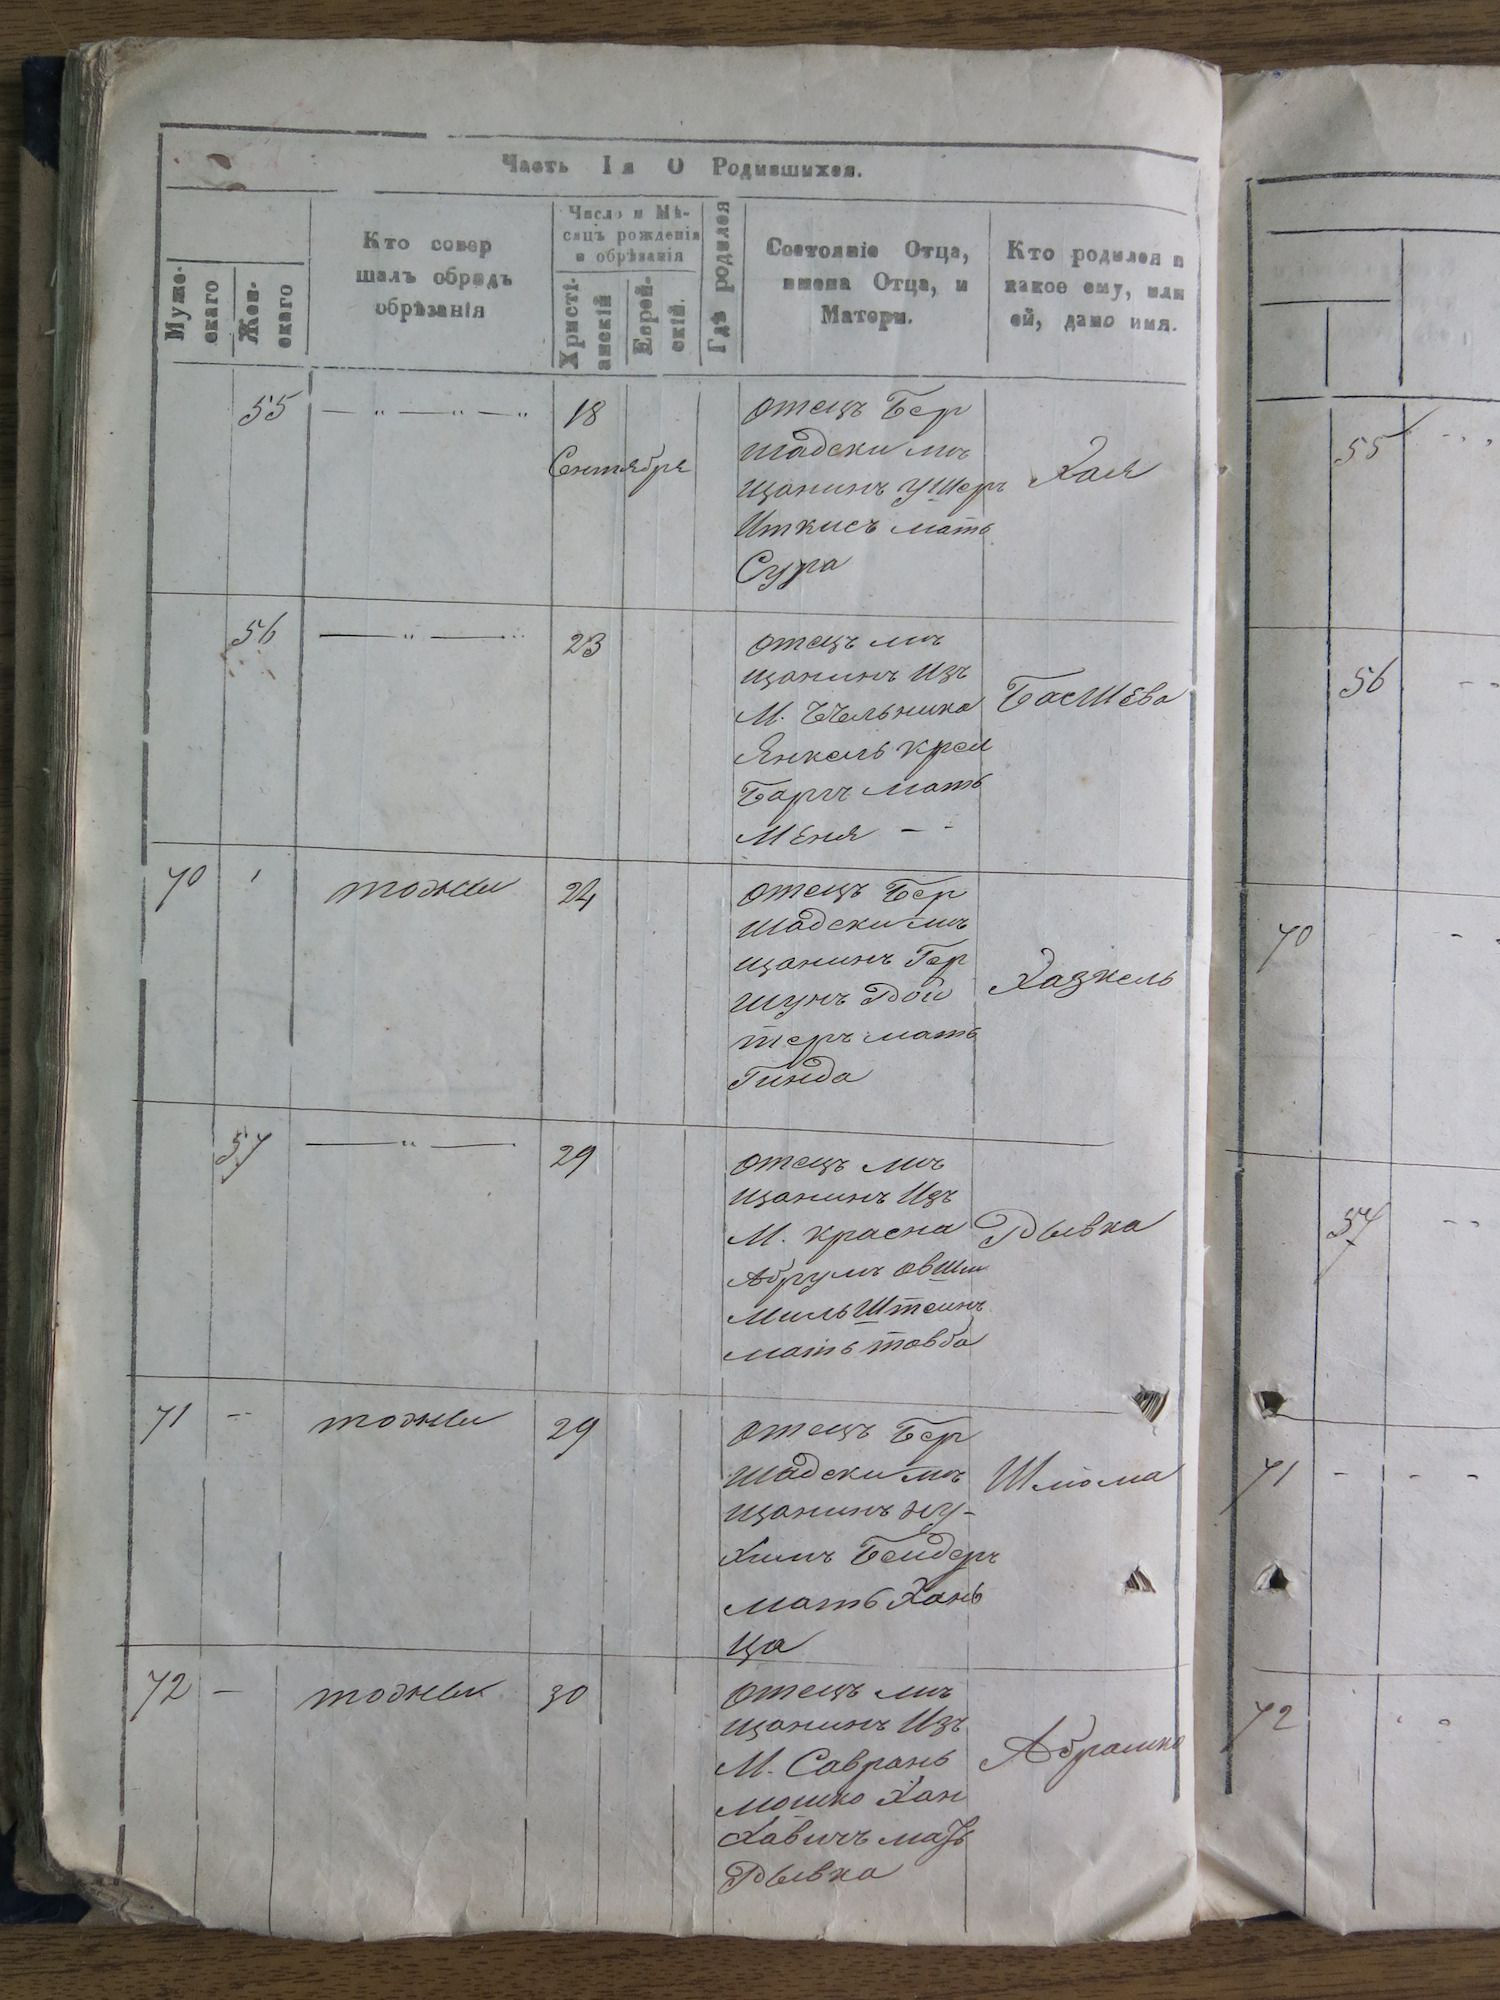 Часть Iя О Родившихся.
Мужескаго
Женскаго
Кто совер
шалъ обрядъ
обрѣзанія
Число и Мѣ-
сяцъ рожденія
и обрѣзанія
Христі-
анскій
Еврей-
скій.
Гдѣ родился
Состояніе Отца,
имена Отца, и
Матери.
Кто родился и
какое ему, или
ей, дано имя.
55 — " — " — " 18
Сентября
отецъ Бер
шадски мѣ
щанинъ Ушеръ
Иткисъ мать
Сура
Хая
56 — " — " 23
отецъ мѣ
щанинъ Изъ
М.
Янкель Крем
Баргъ мать
Меня — -
БасШева
70 ' тотже 24
отецъ Бер
шадски мѣ
щанинъ Гер
шунъ Рой
теръ мать
Гинда
Хазкель
57 — " — 29
отецъ мѣ
щанинъ Изъ
М. Красна
Абрумъ Овши
МильШтеинъ
мать товба
Рывка
71 -- тотже 29
отецъ Бер
шадски мѣ
щанинъ Ну-
химъ Бендеръ
мать Хань
ца
Шлиома
72 — тотже 30
отецъ мѣ
щанинъ Изъ
М. Саврань
мошко Хан
Хавичъ мать
Рывка
Абрамко
55
56
70
57
71 - - -
72